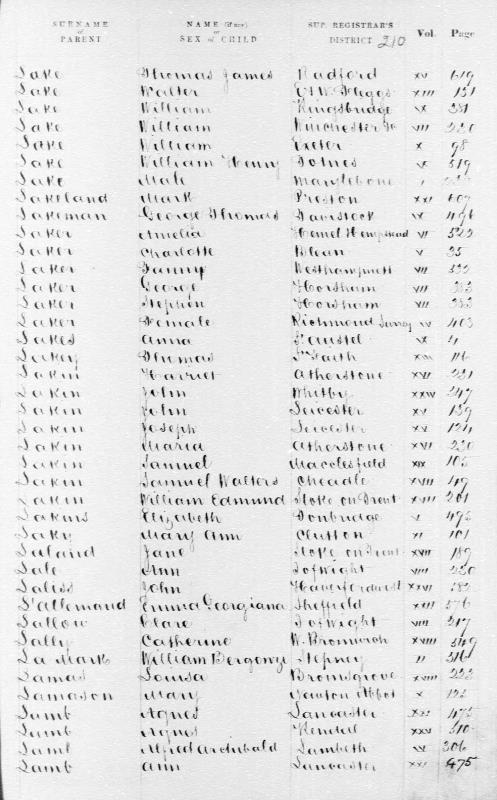 SURNAME of PARENT NAME (if any) or SEX of CHILD SUP. REGISTRAR'S DISTRICT 210 Vol. Page
Lake Thomas James Radford XV 619
Lake Walter E & W Fleggs XIII 131
Lake William Kingsbridge IX 381
Lake William Winchester
Lake William Exeter X 98
Lake William Henry Totnes 319
Lake Male Marylebone
Lakeland Mark Preston XXI 607
Lakeman George Thomas Tavistock IX 496
Laker Amelia Hemel Hempstead VI 522
Laker Charlotte Blean V 35
Laker Fanny Westhampnett VII 532
Laker George Horsham VII 383
Laker Stephen Horsham VII 383
Laker Female Richmond Surrey IV 403
Lakes Anna St Austel IX 4
Lakey Thomas St Faith XIII 116
Lakin Harriet Atherstone XVI 221
Lakin John Whitby XXIV 247
Lakin John Leicester XV 139
Lakin Joseph Leicester XV 124
Lakin Maria Atherstone XVI 230
Lakin Samuel Macclesfield XIX 105
Lakin Samuel Walters Cheadle XVIII 49
Lakin William Edmund Stoke on Trent XVII 201
Lakins Elizabeth Tonbridge V 495
Laky Mary Ann Clutton XI 101
Laland Jane Stoke on Trent XVII 189
Lale Ann I of Wight VIII 250
Laliss John Haverfordwest XXVI 582
L'allemand Emma Georgiana Sheffield XXII 576
Lallow Clare I of Wight VIII 317
Lally Catherine W. Bromwich XVIII 549
La Mark William Bergonzi Stepney II 316
Lamas Louisa Bromsgrove XVIII 223
Lamason Mary Newton Abbot X 122
Lamb Agnes Lancaster XXI 475
Lamb Agnes Kendal XXV 310
Lamb Alfred Archibald Lambeth IV 306
Lamb Ann Lancaster XXI 475